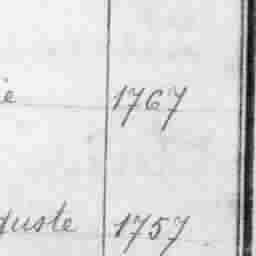 ie 1767
guste 1757